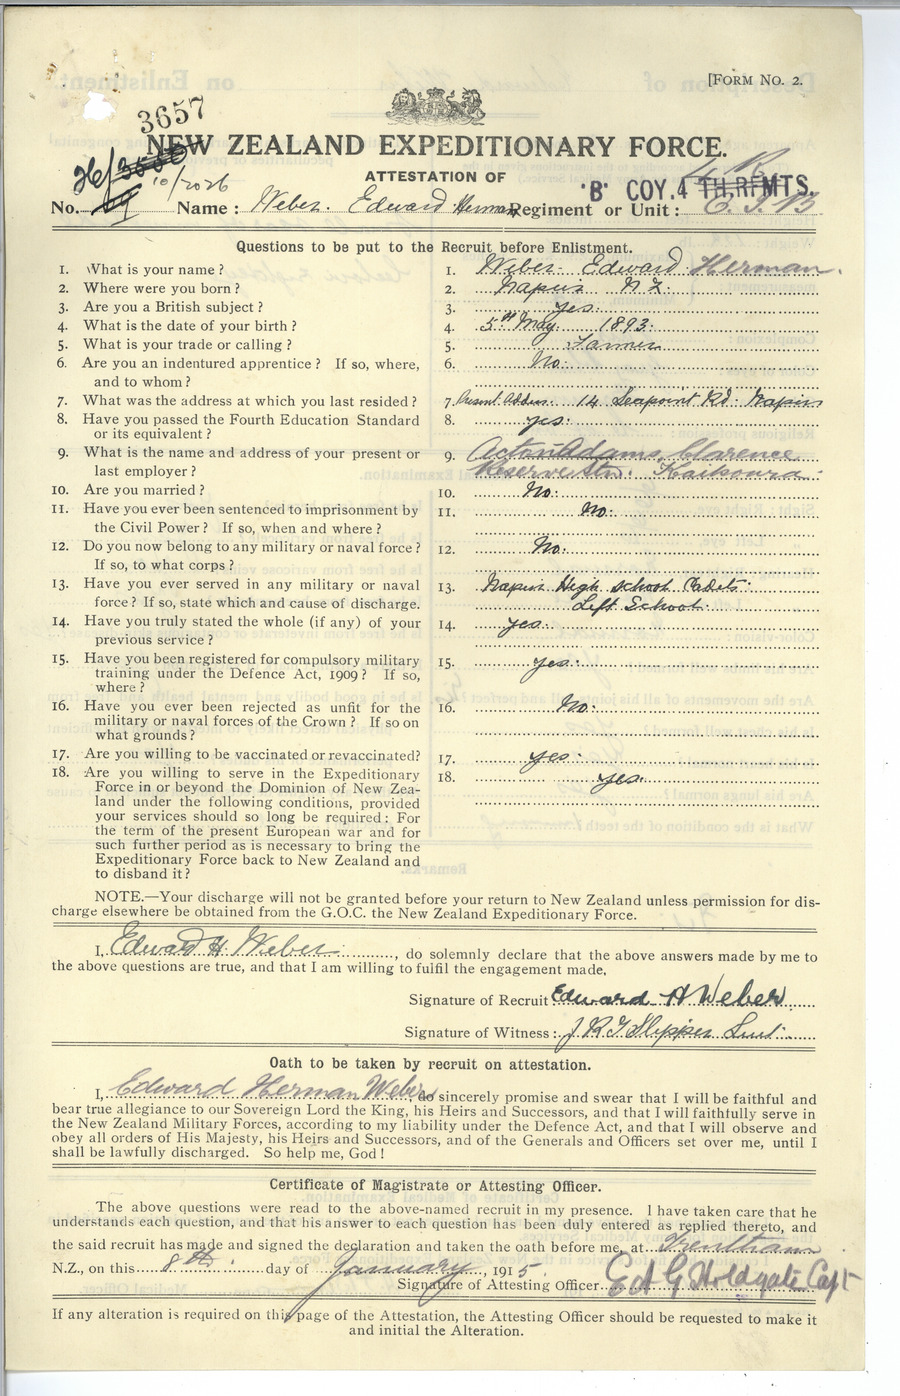 [FORM NO. 2.
3657
NEW ZEALAND EXPEDITIONARY FORCE.
26/
10/2026
ATTESTATION OF
"B" COY. 4 TH. RFMTS.
No. Name : Weber. Edward Herman Regiment or Unit :
Questions to be put to the Recruit before Enlistment.
1. What is your name ? 1. Weber Edward Herman.
2. Where were you born ? 2. Napier N Z.
3. Are you a British subject ? 3. yes.
4. What is the date of your birth ? 4. 5th May 1893.
5. What is your trade or calling ? 5. Farmer
6. Are you an indentured apprentice ? If so, where, 6. No.
and to whom ?
7. What was the address at which you last resided ? 7. Present Address. 14 Seapoint Rd. Napier
8. Have you passed the Fourth Education Standard 8. yes.
or its equivalent ?
9. What is the name and address of your present or 9. Acton Adams. Clarence
last employer ? Reserve Stn. Kaikoura.
10. Are you married ? 10. No.
11. Have you ever been sentenced to imprisonment by 11. No.
the Civil Power ? If so, when and where ?
12. Do you now belong to any military or naval force ? 12. No.
If so, to what corps ?
13. Have you ever served in any military or naval 13. Napier High School Cadets.
force ? If so, state which and cause of discharge. Left School.
14. Have you truly stated the whole (if any) of your 14. yes.
previous service ?
15. Have you been registered for compulsory military 15. yes.
training under the Defence Act, 1909 ? If so,
where ?
16. Have you ever been rejected as unfit for the 16. No.
military or naval forces of the Crown ? If so on
what grounds ?
17. Are you willing to be vaccinated or revaccinated? 17. yes.
18. Are you willing to serve in the Expeditionary 18. yes.
Force in or beyond the Dominion of New Zea-
land under the following conditions, provided
your services should so long be required : For
the term of the present European war and for
such further period as is necessary to bring the
Expeditionary Force back to New Zealand and
to disband it ?
NOTE.—Your discharge will not be granted before your return to New Zealand unless permission for dis-
charge elsewhere be obtained from the G.O.C. the New Zealand Expeditionary Force.
I, Edward H Weber, do solemnly declare that the above answers made by me to
the above questions are true, and that I am willing to fulfil the engagement made,
Signature of Recruit Edward H Weber
Signature of Witness : Lieut.
Oath to be taken by recruit on attestation.
I, Edward Herman Weber do sincerely promise and swear that I will be faithful and
bear true allegiance to our Sovereign Lord the King, his Heirs and Successors, and that I will faithfully serve in
the New Zealand Military Forces, according to my liability under the Defence Act, and that I will observe and
obey all orders of His Majesty, his Heirs and Successors, and of the Generals and Officers set over me, until I
shall be lawfully discharged. So help me, God !
Certificate of Magistrate or Attesting Officer.
The above questions were read to the above-named recruit in my presence. I have taken care that he
understands each question, and that his answer to each question has been duly entered as replied thereto, and
the said recruit has made and signed the declaration and taken the oath before me, at Trentham
N.Z., on this 8th. day of January, 1915.
Signature of Attesting Officer E A G Holdgate Capt
If any alteration is required on this page of the Attestation, the Attesting Officer should be requested to make it
and initial the Alteration.